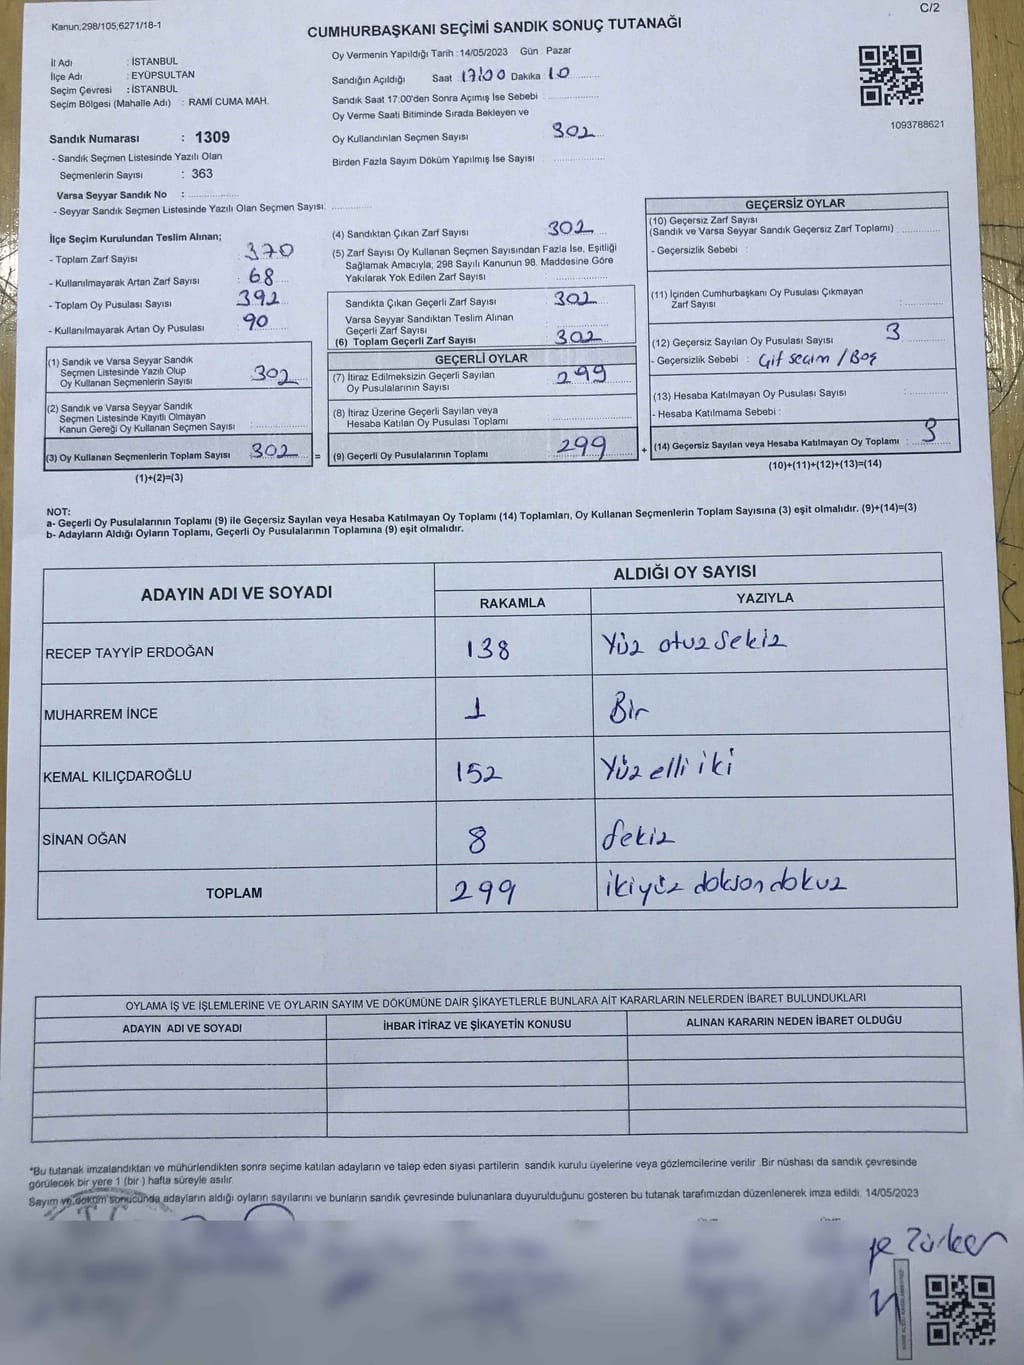 Kanun;298/105,6271/18-1
C/2
CUMHURBAŞKANI SEÇİMİ SANDIK SONUÇ TUTANAĞI
İl Adı : İSTANBUL
İlçe Adı : EYÜPSULTAN
Seçim Çevresi : İSTANBUL
Seçim Bölgesi (Mahalle Adı) : RAMİ CUMA MAH.
Sandık Numarası : 1309
- Sandık Seçmen Listesinde Yazılı Olan
Seçmenlerin Sayısı : 363
Varsa Seyyar Sandık No :
- Seyyar Sandık Seçmen Listesinde Yazılı Olan Seçmen Sayısı:
Oy Vermenin Yapıldığı Tarih : 14/05/2023 Gün : Pazar
Sandığın Açıldığı Saat 17:00 Dakika : 10
Sandık Saat 17:00'den Sonra Açımış İse Sebebi :
Oy Verme Saati Bitiminde Sırada Bekleyen ve
Oy Kullandırılan Seçmen Sayısı 302
Birden Fazla Sayım Döküm Yapılmış İse Sayısı
1093788621
İlçe Seçim Kurulundan Teslim Alınan;
- Toplam Zarf Sayısı : 370
- Kullanılmayarak Artan Zarf Sayısı : 68
- Toplam Oy Pusulası Sayısı : 392
- Kullanılmayarak Artan Oy Pusulası : 90
(1) Sandık ve Varsa Seyyar Sandık
Seçmen Listesinde Yazılı Olup
Oy Kullanan Seçmenlerin Sayısı : 302
(2) Sandık ve Varsa Seyyar Sandık
Seçmen Listesinde Kayıtlı Olmayan
Kanun Gereği Oy Kullanan Seçmen Sayısı :
(3) Oy Kullanan Seçmenlerin Toplam Sayısı 302 =
(1)+(2)=(3)
(4) Sandıktan Çıkan Zarf Sayısı 302
(5) Zarf Sayısı Oy Kullanan Seçmen Sayısından Fazla İse, Eşitliği
Sağlamak Amacıyla; 298 Sayılı Kanunun 98. Maddesine Göre
Yakılarak Yok Edilen Zarf Sayısı
Sandıkta Çıkan Geçerli Zarf Sayısı 302
Varsa Seyyar Sandıktan Teslim Alınan
Geçerli Zarf Sayısı
(6) Toplam Geçerli Zarf Sayısı 302
GEÇERLİ OYLAR
(7) İtiraz Edilmeksizin Geçerli Sayılan
Oy Pusulalarının Sayısı 299
(8) İtiraz Üzerine Geçerli Sayılan veya
Hesaba Katılan Oy Pusulası Toplamı
(9) Geçerli Oy Pusulalarının Toplamı 299 +
GEÇERSİZ OYLAR
(10) Geçersiz Zarf Sayısı
(Sandık ve Varsa Seyyar Sandık Geçersiz Zarf Toplamı)
- Geçersizlik Sebebi :
(11) İçinden Cumhurbaşkanı Oy Pusulası Çıkmayan
Zarf Sayısı :
(12) Geçersiz Sayılan Oy Pusulası Sayısı : 3
- Geçersizlik Sebebi : Çift seçim / Boş
(13) Hesaba Katılmayan Oy Pusulası Sayısı :
- Hesaba Katılmama Sebebi :
(14) Geçersiz Sayılan veya Hesaba Katılmayan Oy Toplamı : 3
(10)+(11)+(12)+(13)=(14)
NOT:
a- Geçerli Oy Pusulalarının Toplamı (9) ile Geçersiz Sayılan veya Hesaba Katılmayan Oy Toplamı (14) Toplamları, Oy Kullanan Seçmenlerin Toplam Sayısına (3) eşit olmalıdır. (9)+(14)=(3)
b- Adayların Aldığı Oyların Toplamı, Geçerli Oy Pusulalarının Toplamına (9) eşit olmalıdır.
ADAYIN ADI VE SOYADI
ALDIĞI OY SAYISI
RAKAMLA YAZIYLA
RECEP TAYYİP ERDOĞAN 138 Yüz otuz sekiz
MUHARREM İNCE 1 Bir
KEMAL KILIÇDAROĞLU 152 Yüz elli iki
SİNAN OĞAN 8 Sekiz
TOPLAM 299 ikiyüz doksan dokuz
OYLAMA İŞ VE İŞLEMLERİNE VE OYLARIN SAYIM VE DÖKÜMÜNE DAİR ŞİKAYETLERLE BUNLARA AİT KARARLARIN NELERDEN İBARET BULUNDUKLARI
ADAYIN ADI VE SOYADI İHBAR İTİRAZ VE ŞİKAYETİN KONUSU ALINAN KARARIN NEDEN İBARET OLDUĞU
*Bu tutanak imzalandıktan ve mühürlendikten sonra seçime katılan adayların ve talep eden siyasi partilerin sandık kurulu üyelerine veya gözlemcilerine verilir .Bir nüshası da sandık çevresinde
görülecek bir yere 1 (bir ) hafta süreyle asılır.
Sayım ve döküm sonucunda adayların aldığı oyların sayılarını ve bunların sandık çevresinde bulunanlara duyurulduğunu gösteren bu tutanak tarafımızdan düzenlenerek imza edildi. 14/05/2023